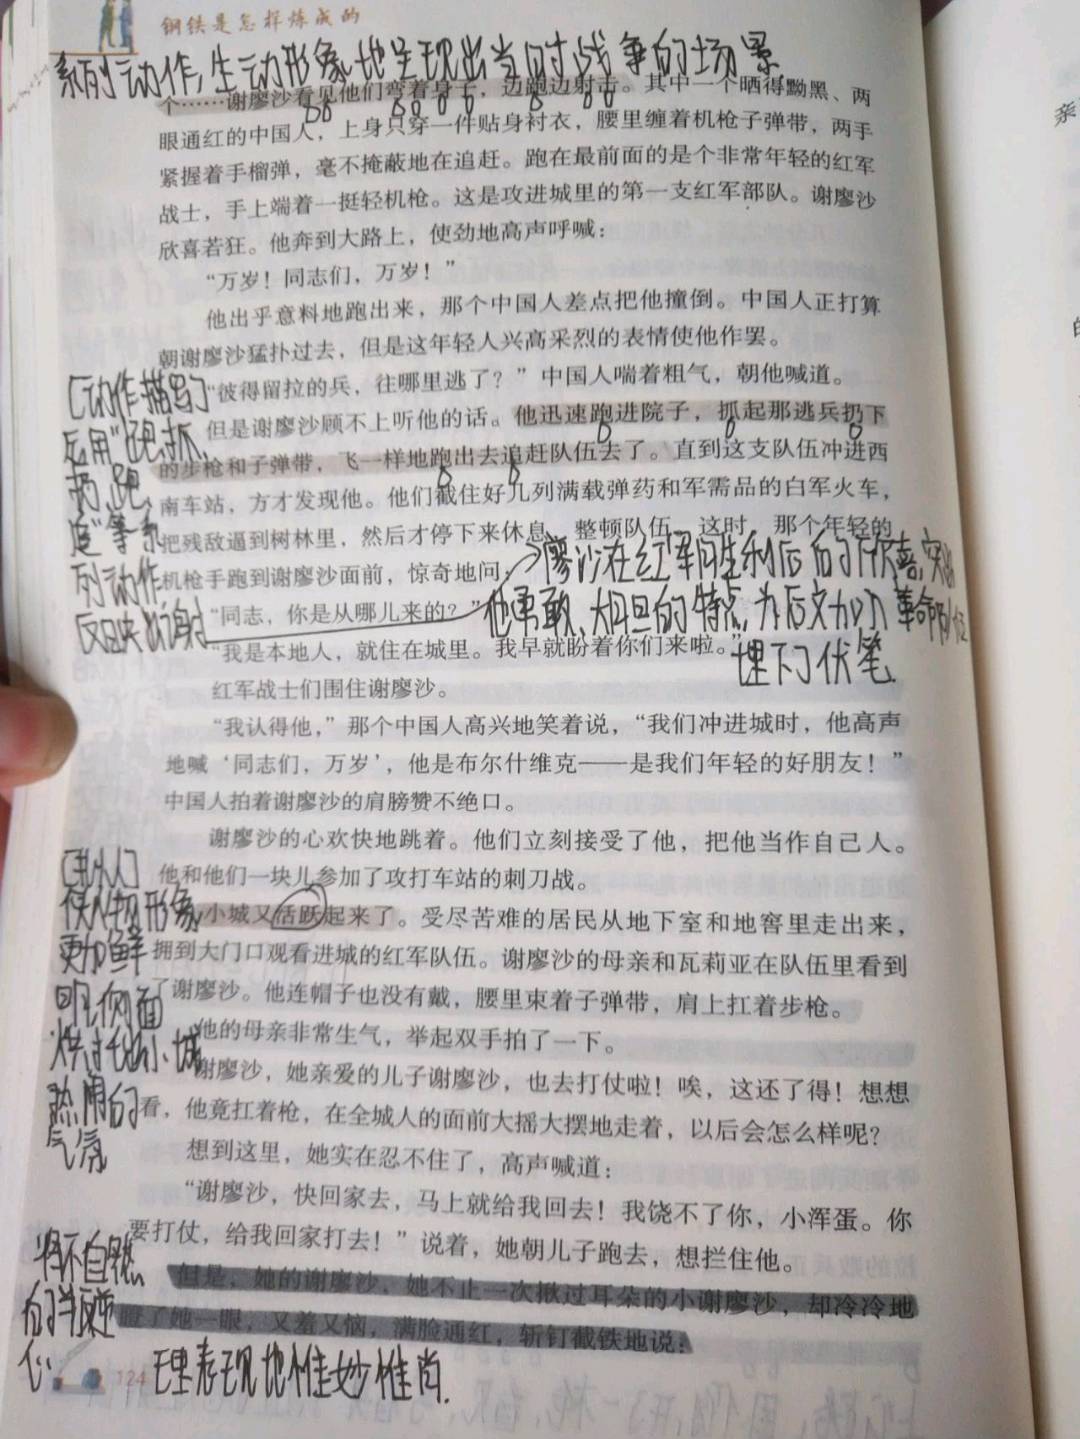 钢铁是怎样炼成的
系列动作,生动形象地呈现出当时战争的场景
个……谢廖沙看见他们弯着身子，边跑边射击。其中一个晒得黝黑、两
眼通红的中国人，上身只穿一件贴身衬衣，腰里缠着机枪子弹带，两手
紧握着手榴弹，毫不掩蔽地在追赶。跑在最前面的是个非常年轻的红军
战士，手上端着一挺轻机枪。这是攻进城里的第一支红军部队。谢廖沙
欣喜若狂。他奔到大路上，使劲地高声呼喊：
“万岁！同志们，万岁！”
他出乎意料地跑出来，那个中国人差点把他撞倒。中国人正打算
朝谢廖沙猛扑过去，但是这年轻人兴高采烈的表情使他作罢。
“彼得留拉的兵，往哪里逃了？”中国人喘着粗气，朝他喊道。
但是谢廖沙顾不上听他的话。他迅速跑进院子，抓起那逃兵扔下
的步枪和子弹带，飞一样地跑出去追赶队伍去了。直到这支队伍冲进西
南车站，方才发现他。他们截住好几列满载弹药和军需品的白军火车，
把残敌逼到树林里，然后才停下来休息，整顿队伍。这时，那个年轻的
机枪手跑到谢廖沙面前，惊奇地问：
“同志，你是从哪儿来的？”
“我是本地人，就住在城里。我早就盼着你们来啦。”
红军战士们围住谢廖沙。
“我认得他，”那个中国人高兴地笑着说，“我们冲进城时，他高声
地喊‘同志们，万岁’，他是布尔什维克——是我们年轻的好朋友！”
中国人拍着谢廖沙的肩膀赞不绝口。
谢廖沙的心欢快地跳着。他们立刻接受了他，把他当作自己人。
他和他们一块儿参加了攻打车站的刺刀战。
小城又活跃起来了。受尽苦难的居民从地下室和地窖里走出来，
拥到大门口观看进城的红军队伍。谢廖沙的母亲和瓦莉亚在队伍里看到
了谢廖沙。他连帽子也没有戴，腰里束着子弹带，肩上扛着步枪。
他的母亲非常生气，举起双手拍了一下。
谢廖沙，她亲爱的儿子谢廖沙，也去打仗啦！唉，这还了得！想想
看，他竟扛着枪，在全城人的面前大摇大摆地走着，以后会怎么样呢？
想到这里，她实在忍不住了，高声喊道：
“谢廖沙，快回家去，马上就给我回去！我饶不了你，小浑蛋。你
要打仗，给我回家打去！”说着，她朝儿子跑去，想拦住他。
但是，她的谢廖沙，她不止一次揪过耳朵的小谢廖沙，却冷冷地
瞪了她一眼，又羞又恼，满脸通红，斩钉截铁地说：
[动作描写]
运用“跑,抓,
扔、跑、
追”等系
列动作
反映出谢
廖沙在红军闩胜利后的欣喜,突出
他勇敢、大胆的特点,为后文加入革命队伍
埋下了伏笔
[拟人]
使人物形象
更加鲜
明,侧面
烘托出小城
热闹的
气氛
将不自然
的
心
理表现地惟妙惟肖.
124
亲
的